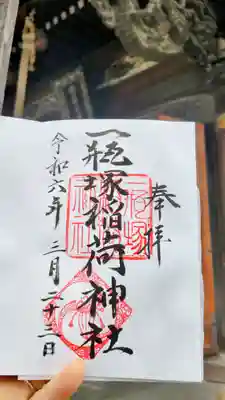 奉拝
一瓶塚稲荷神社
令和六年 三月二十三日